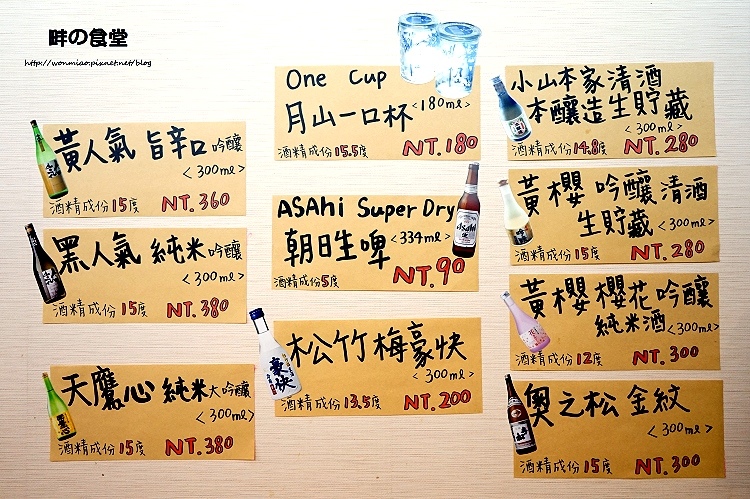 畔の食堂
http://wonmiao.pixnet.net/blog
黃人氣 旨辛口 吟釀
<300ml>
酒精成份15度 NT.360
黑人氣 純米吟釀
<300ml>
酒精成份15度 NT.380
天鷹心 純米大吟釀
<300ml>
酒精成份15度 NT.380
One Cup
月山一口杯 <180ml>
酒精成份15.5度 NT.180
ASAhi Super Dry
朝日生啤 <334ml>
酒精成份5度 NT.90
松竹梅豪快
<300ml>
酒精成份13.5度 NT.200
豪快
小山本家清酒
本釀造生貯藏
<300ml>
酒精成份14.8度 NT.280
黃櫻 吟釀清酒
生貯藏 <300ml>
酒精成份15度 NT.280
黃櫻 櫻花吟釀
純米酒 <300ml>
酒精成份12度 NT.300
奧之松 金紋
<300ml>
酒精成份15度 NT.300